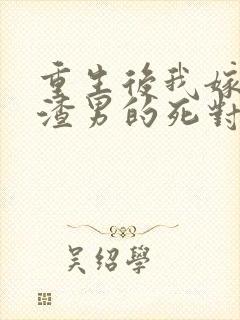 重生後我嫁
渣男的死對
吳紹學